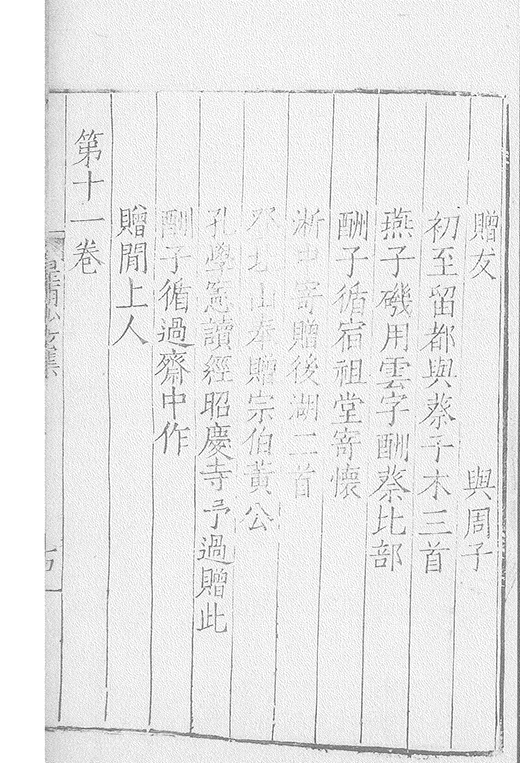 贈友　與周子
初至留都與蔡子木三首
燕子磯用雲字酬蔡比部
酬子循宿祖堂寄懷
浙中寄贈後湖二首
北山奉贈宗伯黃公
孔學憲讀經昭慶寺予過贈此
酬子循過齋中作
贈閒上人
第十一卷